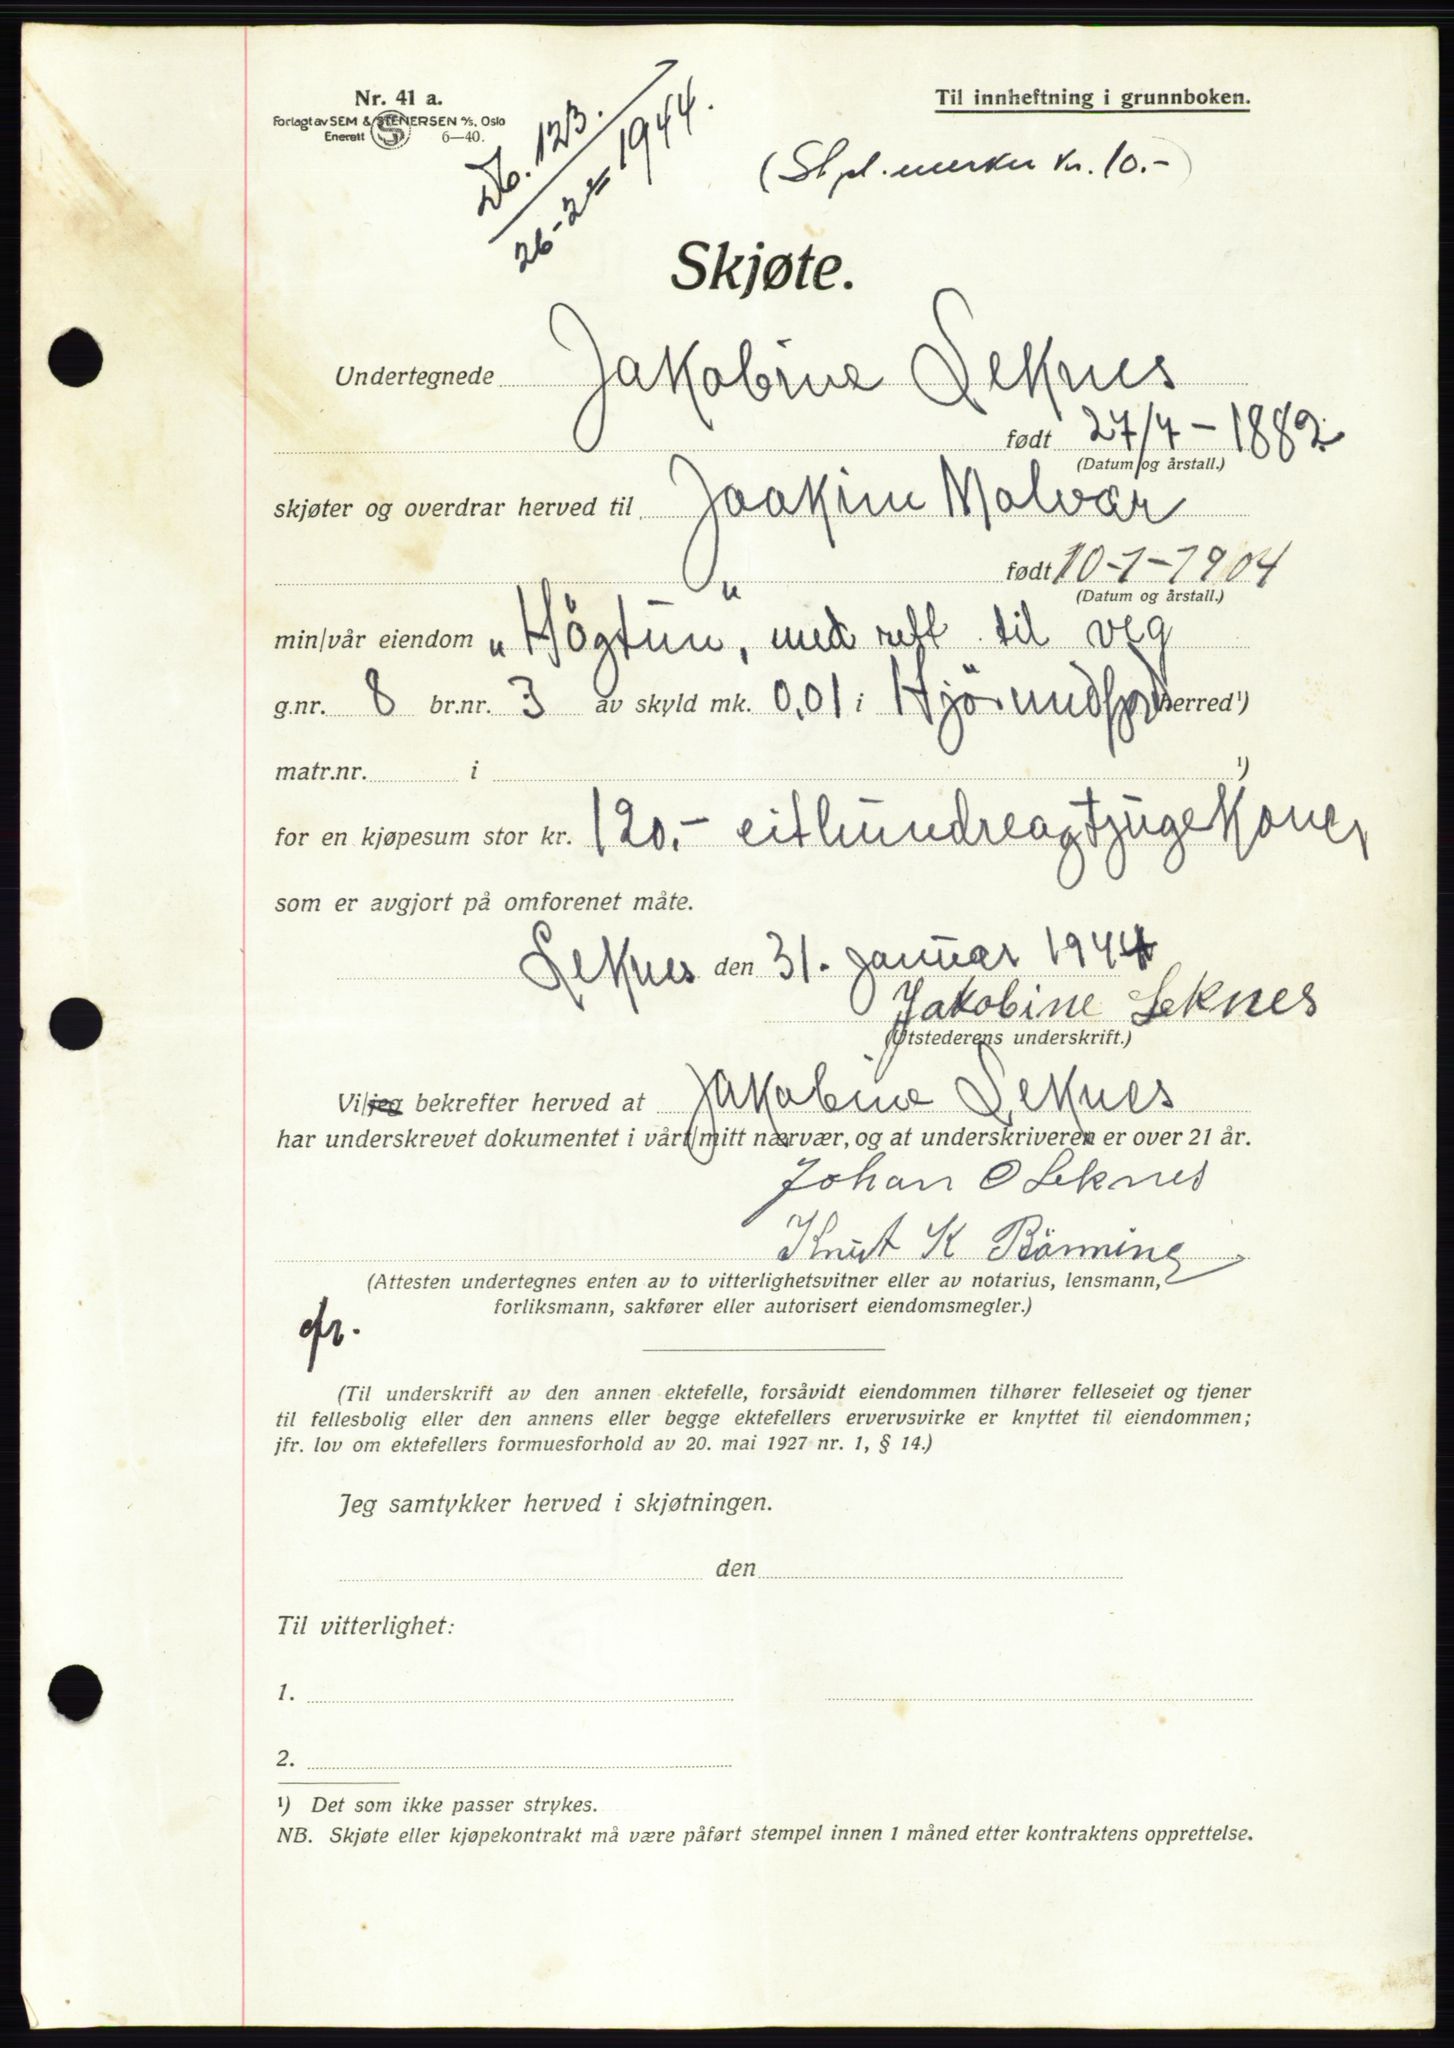 Nr. 41 a.
Forlagt av SEM & STENERSEN A/S, Oslo
Enerett 6—40.
Db. 123.
26-2 1944.
Til innheftning i grunnboken.
(Stpl.merker kr. 10.-)
Skjøte.
Undertegnede Jakobine Leknes
født 27/7 - 1882.
(Datum og årstall.)
skjøter og overdrar herved til Joakim Molvær
født 10-1-1904
(Datum og årstall.)
min/vår eiendom „Högtun", med rett til veg
g.nr. 8 br.nr. 3 av skyld mk. 0,01 i Hjörundfjord herred¹)
matr.nr. i ¹)
for en kjøpesum stor kr. 120.- eithundreogtjuge kroner
som er avgjort på omforenet måte.
Leknes den 31. januar 1944
Jakobine Leknes
(Utstederens underskrift.)
Vi/jeg bekrefter herved at Jakobine Leknes
har underskrevet dokumentet i vårt/mitt nærvær, og at underskriveren er over 21 år.
Johan O Leknes
Knut K
(Attesten undertegnes enten av to vitterlighetsvitner eller av notarius, lensmann,
forliksmann, sakfører eller autorisert eiendomsmegler.)
(Til underskrift av den annen ektefelle, forsåvidt eiendommen tilhører felleseiet og tjener
til fellesbolig eller den annens eller begge ektefellers ervervsvirke er knyttet til eiendommen;
jfr. lov om ektefellers formuesforhold av 20. mai 1927 nr. 1, § 14.)
Jeg samtykker herved i skjøtningen.
den
Til vitterlighet:
1.
2.
¹) Det som ikke passer strykes.
NB. Skjøte eller kjøpekontrakt må være påført stempel innen 1 måned etter kontraktens opprettelse.